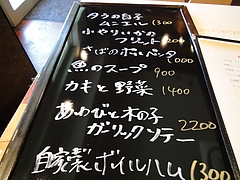 タラの白子
ムニエル 1300
小ヤリイカの
フリット 1200
さばのポルペッタ
1000
魚のスープ 900
カキと野菜 1400
あわびと木の子
ガーリックソテー 2200
自家製ボイルハム 1300